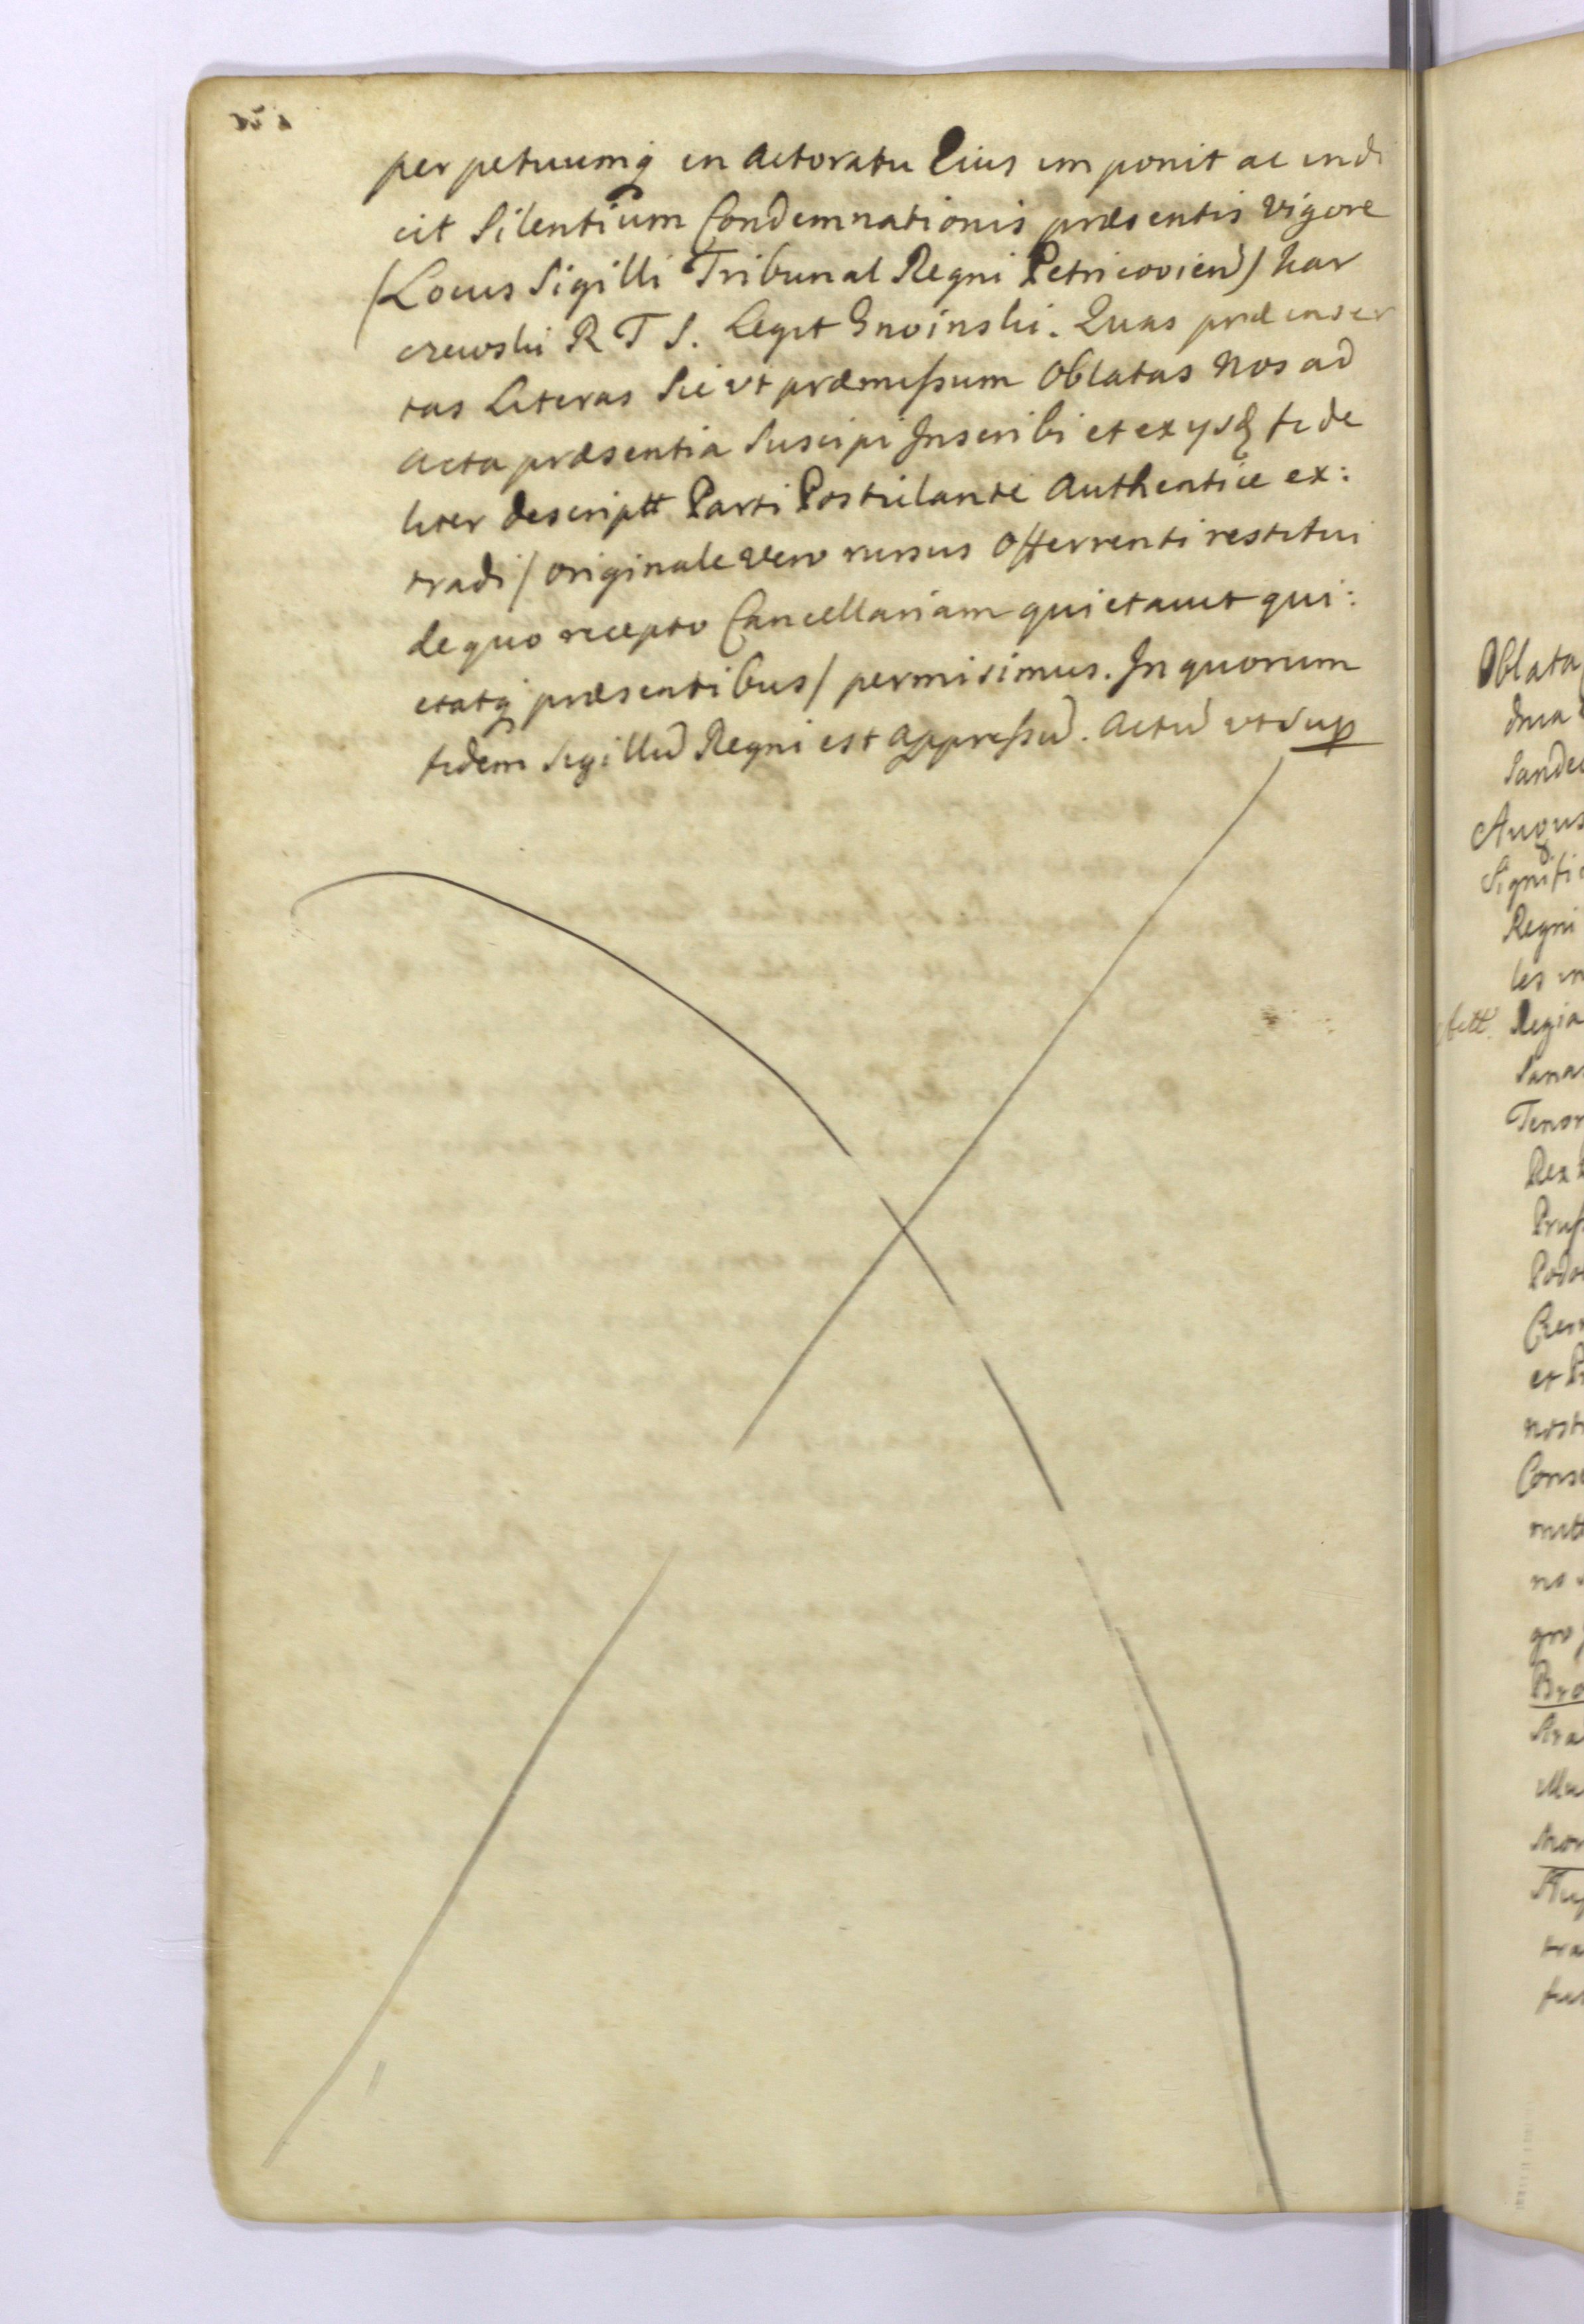 perpetuumq in Actoratu Eius imponit ac indi
cit Silentium Condemnationis præsentis vigore
(Locus Sigilli Tribunal Regni Petricovien) Kar
czewski R T S. Legit Gnoinski. Quas præinser
tas Literas Sic vt præmissum Oblatas Nos ad
Acta præsentia Suscipi Inscribi et ex ysdq fide
liter descriptt Parti Postulanti Authentice ex:
tradi / originale vero rursus Offerrenti restitui
de quo recepto Cancellariam quietavit qui:
etatq præsentibus / permisimus. In quorum
fidem Sigillu Regni est Appressu. Actu vt Sup
Oblata
dna
Sande
Augus
Signifi
Regni
les in
Regia
Sana
Tenor
Rex
Pruss
Podo
et P
nost
Cons
mitt
no
gro
Bro
Stra